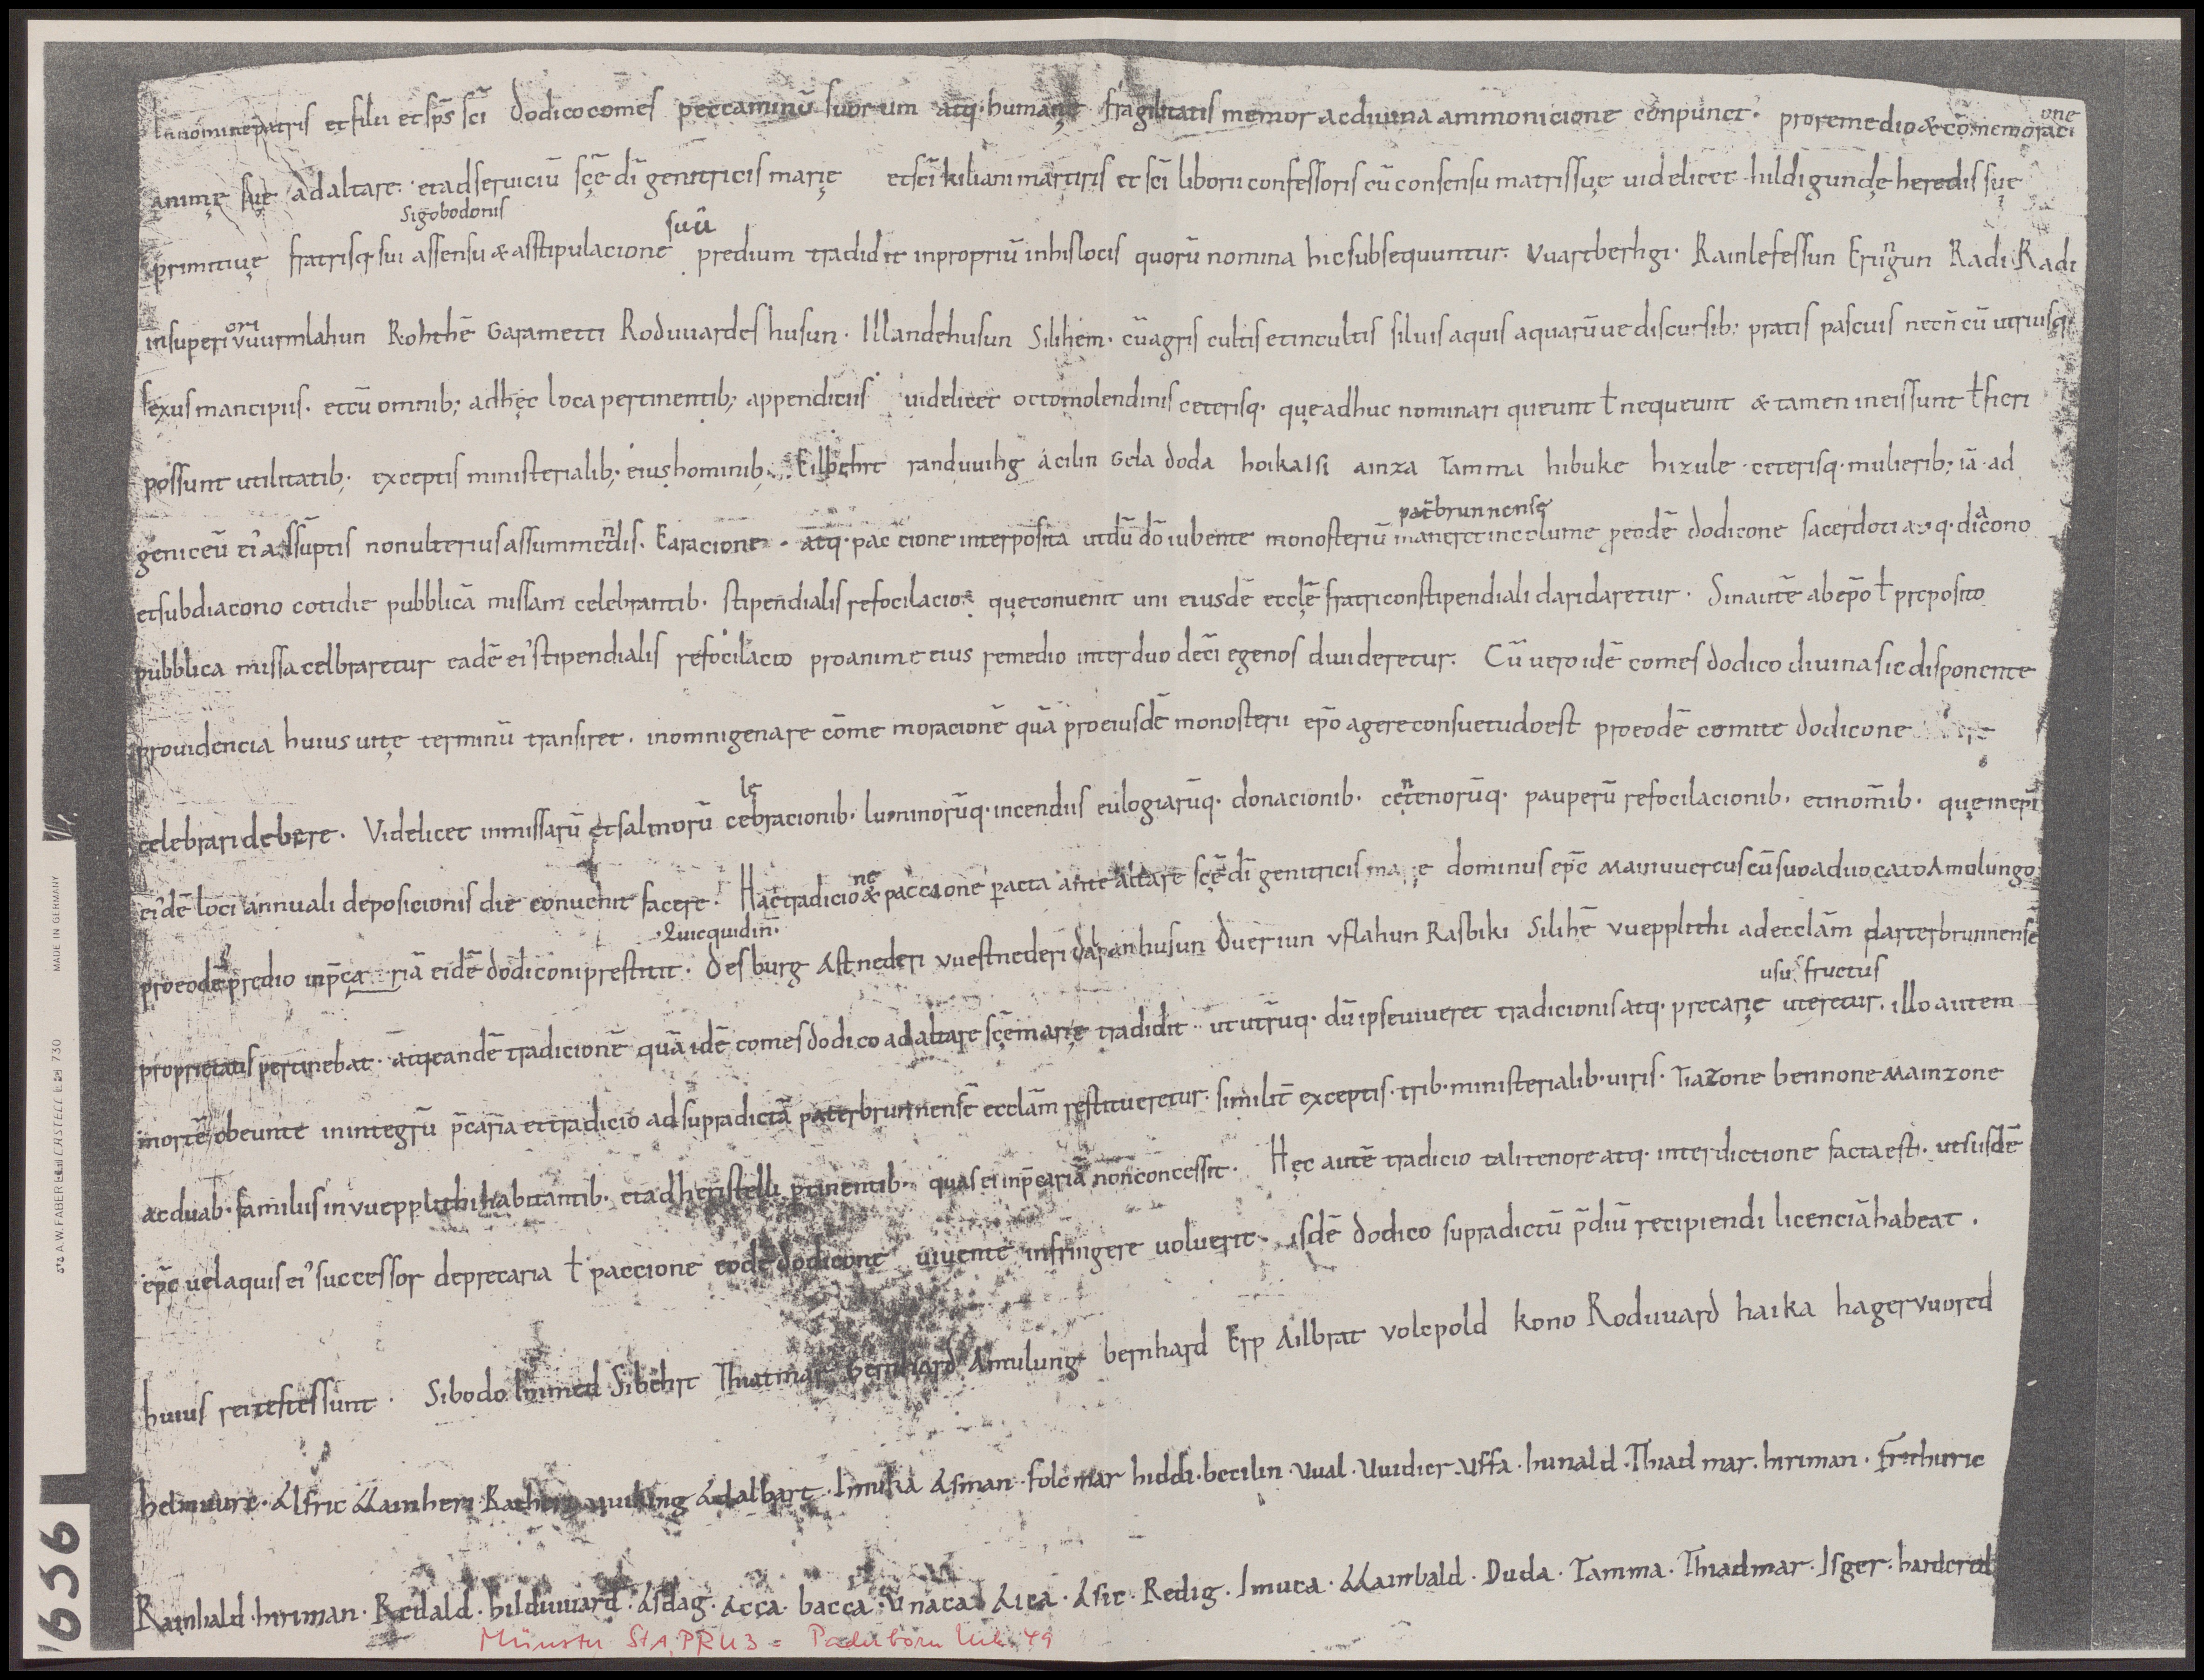 In nomine patris et filii et sp̄s sc̄i dodico comes peccaminū suorum atq· humanę fragilitatis memor ac diuina ammonicione conpunct' pro remedio & cōmemoraci
one
animę suę ad altare· et ad seruiciū scę̄ dī genitricis marię et sc̄i kiliani martiris et sc̄i liborii confessoris cū consensu matris suę uidelicet hildigundę heredis suę
Sigobodonis suū
primitiuę fratrisq· sui assensu & asstipulacione predium tradidit in propriū in his locis quorū nomina hic subsequuntur· Vuartberhgi· Rainlefessun Eringun Radi Radi
n
ori
in superi vuurmlahun Rohthē Garametti Roduuardeshusun· Illandehusun Silihem· cū agris cultis et incultis siluis aquis aquarūue discursib; pratis pascuis necn̄ cū utriusq·
sexus mancipiis· et cū omnib; ad hęc loca pertinentib; appendiciis uidelicet octo molendinis ceterisq· quę adhuc nominari queunt ł nequeunt & tamen in eis sunt ł fieri
possunt utilitatib; exceptis ministerialib; eius hominib; Eilbehrt randuuihg acilin Gela doda hoika Isi ainza Tamma hibuke hizule ceterisq· mulierib; iā ad
patbrunnense
geniceū ei' assūptis non ulterius assummendis· Ea racione atq· paccione interposita ut dū dō iubente monosteriū maneret incolume p eodē dodicone sacerdoti atq· diacono
et subdiacono cotidie pubblicā missam celebrantib· stipendialis refocilacio quę conuenit uni eiusdē ecclę̄ fratri constipendiali dari daretur· Sin autē ab ep̄o ł preposito
pubblica missa celbraretur eadē ei' stipendialis refocilacio pro anime eius remedio inter duodecī egenos diuideretur· Cū uero idē comes dodico diuina sic disponente
prouidencia huius uitę terminū transiret· in omnigenare cōmemoracionē quā pro eiusdē monosterii ep̄o agere consuetudo est pro eodē comite dodicone
lę
celebrari debere· Videlicet in missarū et salmorū cebracionib· luminorūq· incendiis eulogiarūq· donacionib· centenorūq· pauperū refocilacionib· et in om̄ib· quę in ep̄i
eidē loci annuali deposicionis die conuenit facere· Hac tradicio & paccione pacta ante altare scę̄ dī genitricis marię dominus ep̄c Mainuuercus cū suo aduocato Amolungo
ne
·Quicquid in·
pro eodē predio in p̄cariā eidē dodiconi prestitit· desburg Astnederi vuestnederi dalpanhusun Dueriun vflahun Rasbiki Silihē vuepplithi ad ecclām patterbrunnensē
usu fructus
proprietatis pertinebat· atq· eandē tradicionē quā idē comes dodico ad altare scę̄ marię tradidit· ut utrūq· dū ipse uiueret tradicionis atq· precarię uteretur· illo autem
mortē obeunte in integrū p̄caria et tradicio ad supradictā paterbrunnensē ecclām restitueretur· similit̄ exceptis· trib· ministerialib· uiris· Tiazone bennone Mainzone
ac duab· familiis in vuepplithi habitantib· et ad heristelli ptinentib· quas ei in p̄cariā non concessit· Hęc autē tradicio tali tenore atq· interdictione facta est· ut si isdē
ep̄c uel aquis ei' successor de precaria ł paccione eodē dodicone uiuente infringere uoluerit· isdē dodico supradictū p̄diū recipiendi licenciā habeat·
huius rei testes sunt· Sibodo Immed Sibehrt Thiatmar bernhard Amulung bernhard Erp Ailbrat volcpold kono Roduuard haika hager vuored
helmuurc· Alfric Mainheri Ratheri vuiking Adalbart· Immika Asman· folcmar hiddi· becilin· Vual· Vuidier· Vffa· hunald· Thiad mar· hiriman· Frethuric
Rainbald· hiriman· Redald· hilduuuard· Asdag· Acca· bacca· Vnaca· Aica· Asic· Redig· Imuca· Mainbald· Duda· Tamma· Thiadmar· Isger· hardered
Münster StA, PRU 3 = Paderborn Urk. 49
1656
MADE IN GERMANY
A.W. FABER CASTELL 730